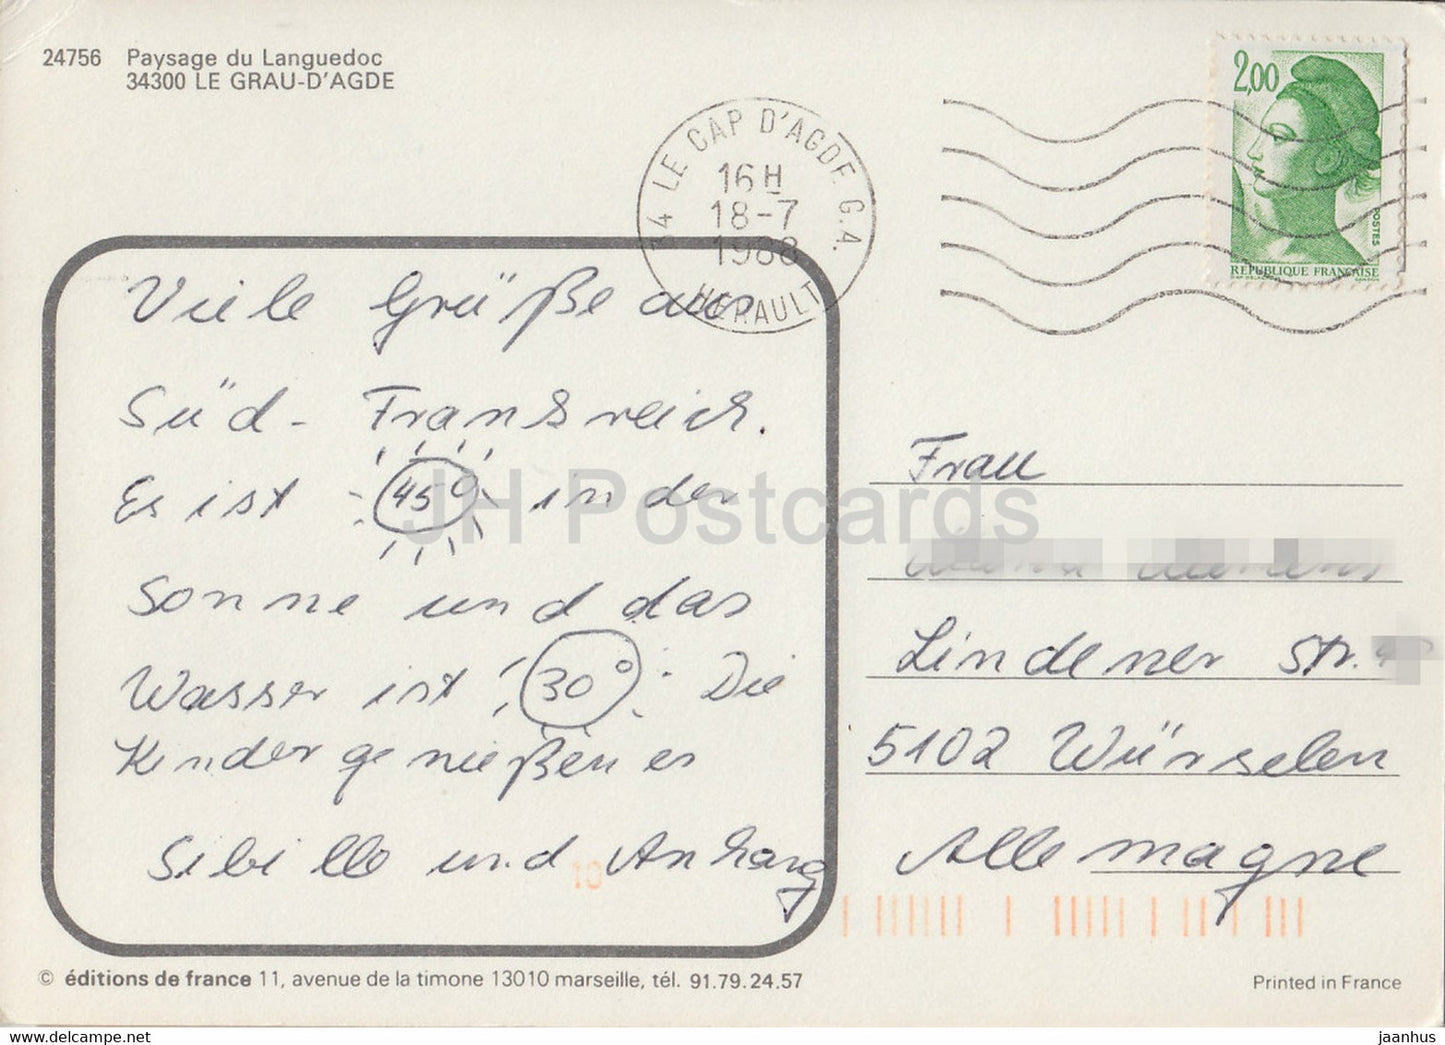 24756 Paysage du Languedoc
34300 LE GRAU-D'AGDE
34 LE CAP D'AGDE G.A.
16 H
18-7
1988
HERAULT
2,00
POSTES
REPUBLIQUE FRANÇAISE
Viele Grüße aus
Süd-Frankreich.
Es ist 45° in der
Sonne und das
Wasser ist 30°. Die
Kinder genießen es
Sibille und Anhang
Frau
Lindener Str.
5102 Würselen
Allemagne
10
© éditions de france 11, avenue de la timone 13010 marseille, tél. 91.79.24.57
Printed in France
JH Postcards
https://www.delcampe.net
jaanhus